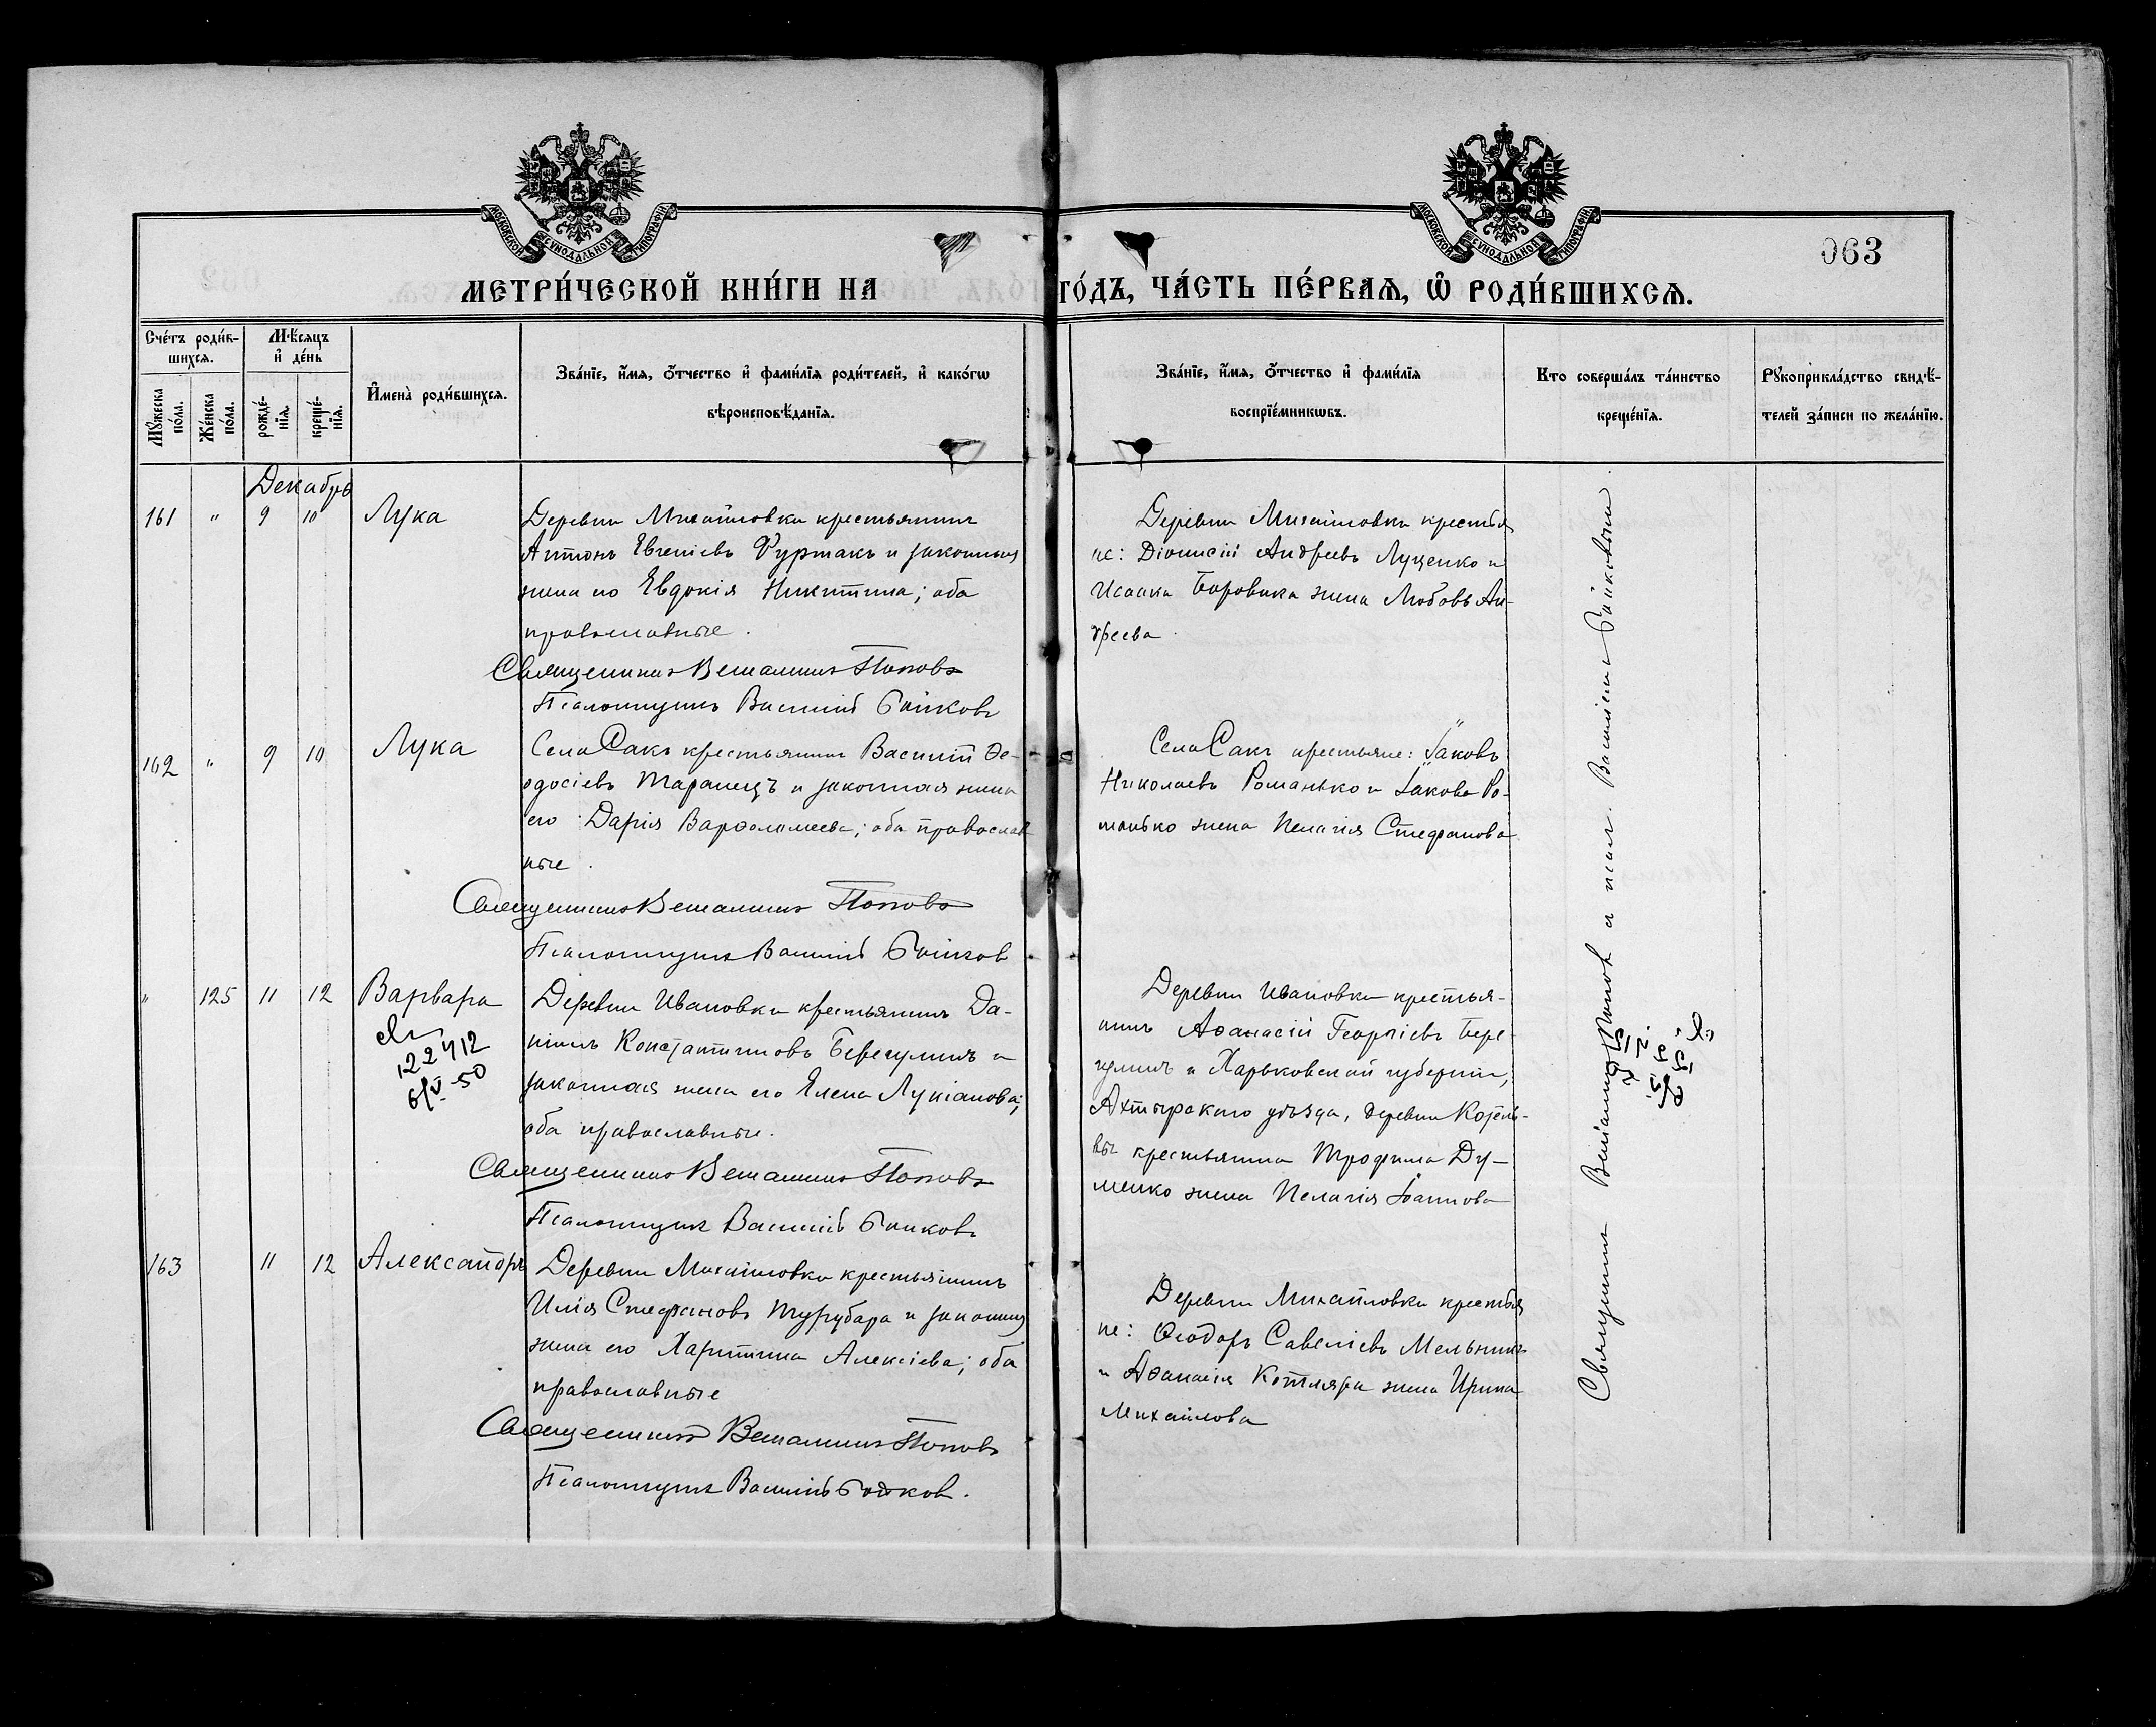 МОСКОВСКОЙ СѴНОДАЛЬНОЙ ТИПОГРАФІИ
МОСКОВСКОЙ СѴНОДАЛЬНОЙ ТИПОГРАФІИ
063
МЕТРИ́ЧЕСКОЙ КНИ́ГИ НА ГО́ДЪ, ЧА́СТЬ ПЕ́РВАѦ, Ѡ РОДИ́ВШИХСѦ.
Сче́тъ роди́в-
шихсѧ.
Мꙋжеска по́ла.
Же́нска по́ла.
Мѣ́сѧцъ
и҆ де́нь
рожде́-
нїѧ.
креще́-
нїѧ.
И҆мена̀ роди́вшихсѧ.
Зва́нїе, и҆́мѧ, ѻ҆́тчество и҆ фами́лїѧ роди́телей, и҆ како́гѡ
вѣроисповѣ́данїѧ.
Зва́нїе, и҆́мѧ, ѻ҆́тчество и҆ фами́лїѧ
воспрїе́мникѡвъ.
Кто соверша́лъ та́инство
креще́нїѧ.
Рꙋкоприкла́дство свидѣ́-
телей за́писи по жела́нїю.
Декабрь
161 " 9 10 Лука
Деревни Михайловки крестьянинъ
Антонъ Евгеніевъ Фурманъ и законная
жена его Евдокія Никитина; оба
православные.
Священникъ Веніаминъ Поповъ
Псаломщикъ Василій Бойковъ
Деревни Михайловки крестья
не: Діонисій Андреевъ Луценко и
Исаака Боровика жена Любовь Ан-
дреева.
162 " 9 10 Лука
Села Сакъ крестьянинъ Василій Ѳе-
одосіевъ Таранецъ и законная жена
его Дарія Варѳоломеева; оба православ
ные.
Священникъ Веніаминъ Поповъ
Псаломщикъ Василій Бойковъ
Села Сакъ крестьяне: Іаковъ
Николаевъ Романько и Іакова Ро-
манько жена Пелагія Стефанова
" 125 11 12 Варвара
122412
6/V-50
Деревни Ивановки крестьянинъ Да-
ніилъ Константиновъ Берегулинъ и
законная жена его Елена Лукіанова;
оба православные.
Священникъ Веніаминъ Поповъ
Псаломщикъ Василій Бойковъ
Деревни Ивановки крестья-
нинъ Аѳанасій Георгіевъ Бере-
гулинъ и Харьковской губерніи,
Ахтырскаго уѣзда, деревни Котель-
вы крестьянина Трофима Ду-
менко жена Пелагія Іоаннова
163 11 12 Александръ
Деревни Михайловки крестьянинъ
Илія Стефановъ Турубара и законная
жена его Харитина Алексіева; оба
православные
Священникъ Веніаминъ Поповъ
Псаломщикъ Василій Бойковъ.
Деревни Михайловки крестья
не: Ѳеодоръ Савеліевъ Мельникъ
и Аѳанасія Котляра жена Ирина
Михайлова
Священникъ Веніаминъ Поповъ и псал. Василій Бойковъ